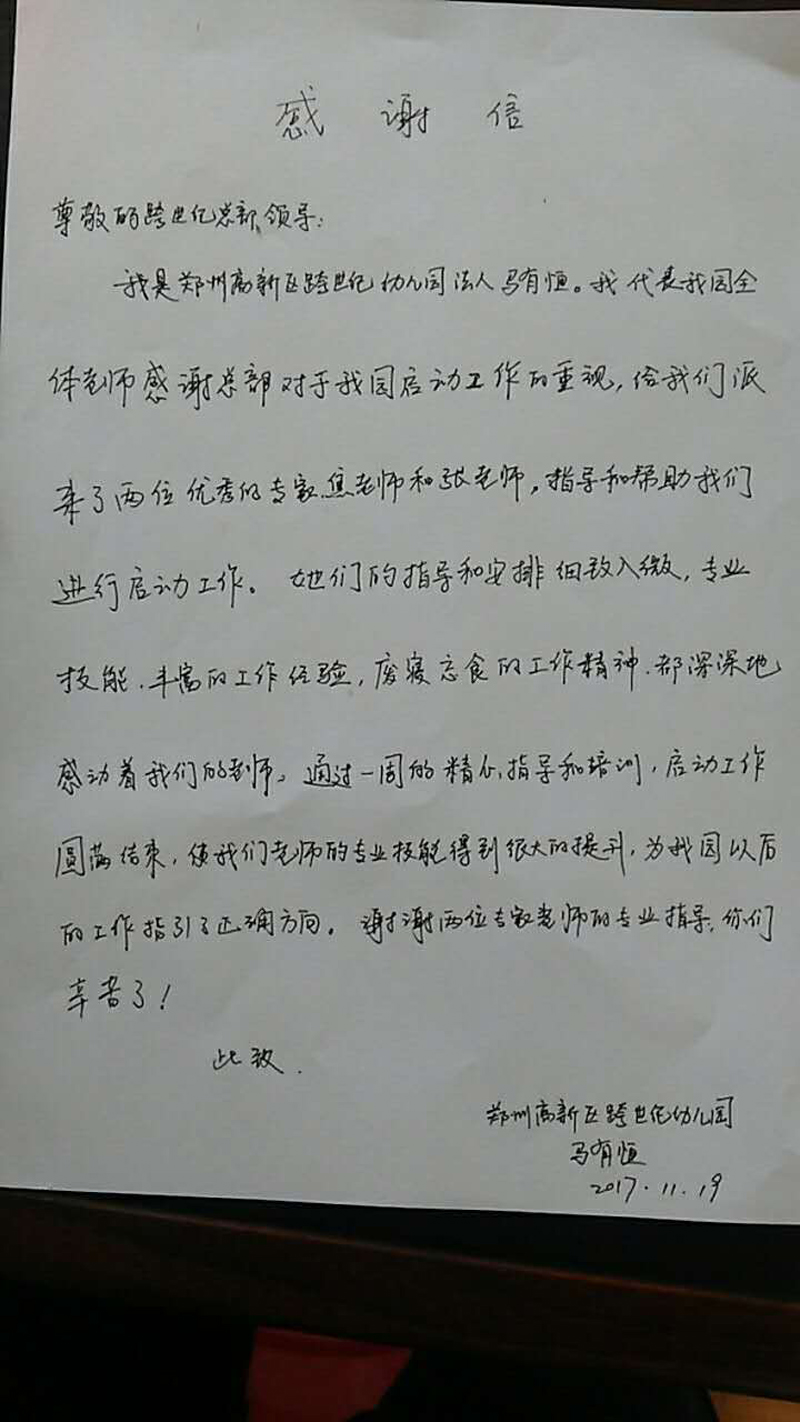 感谢信
尊敬的跨世纪总部领导：
我是郑州高新区跨世纪幼儿园法人马有恒。我代表我园全
体老师感谢总部对于我园启动工作的重视，给我们派
来了两位优秀的专家焦老师和张老师，指导和帮助我们
进行启动工作。她们的指导和安排细致入微，专业
技能、丰富的工作经验，废寝忘食的工作精神、都深深地
感动着我们的老师。通过一周的精心指导和培训，启动工作
圆满结束，使我们老师的专业技能得到很大的提升，为我园以后
的工作指引了正确方向。谢谢两位专家老师的专业指导，你们
辛苦了！
此致.
郑州高新区跨世纪幼儿园
马有恒
2017.11.19